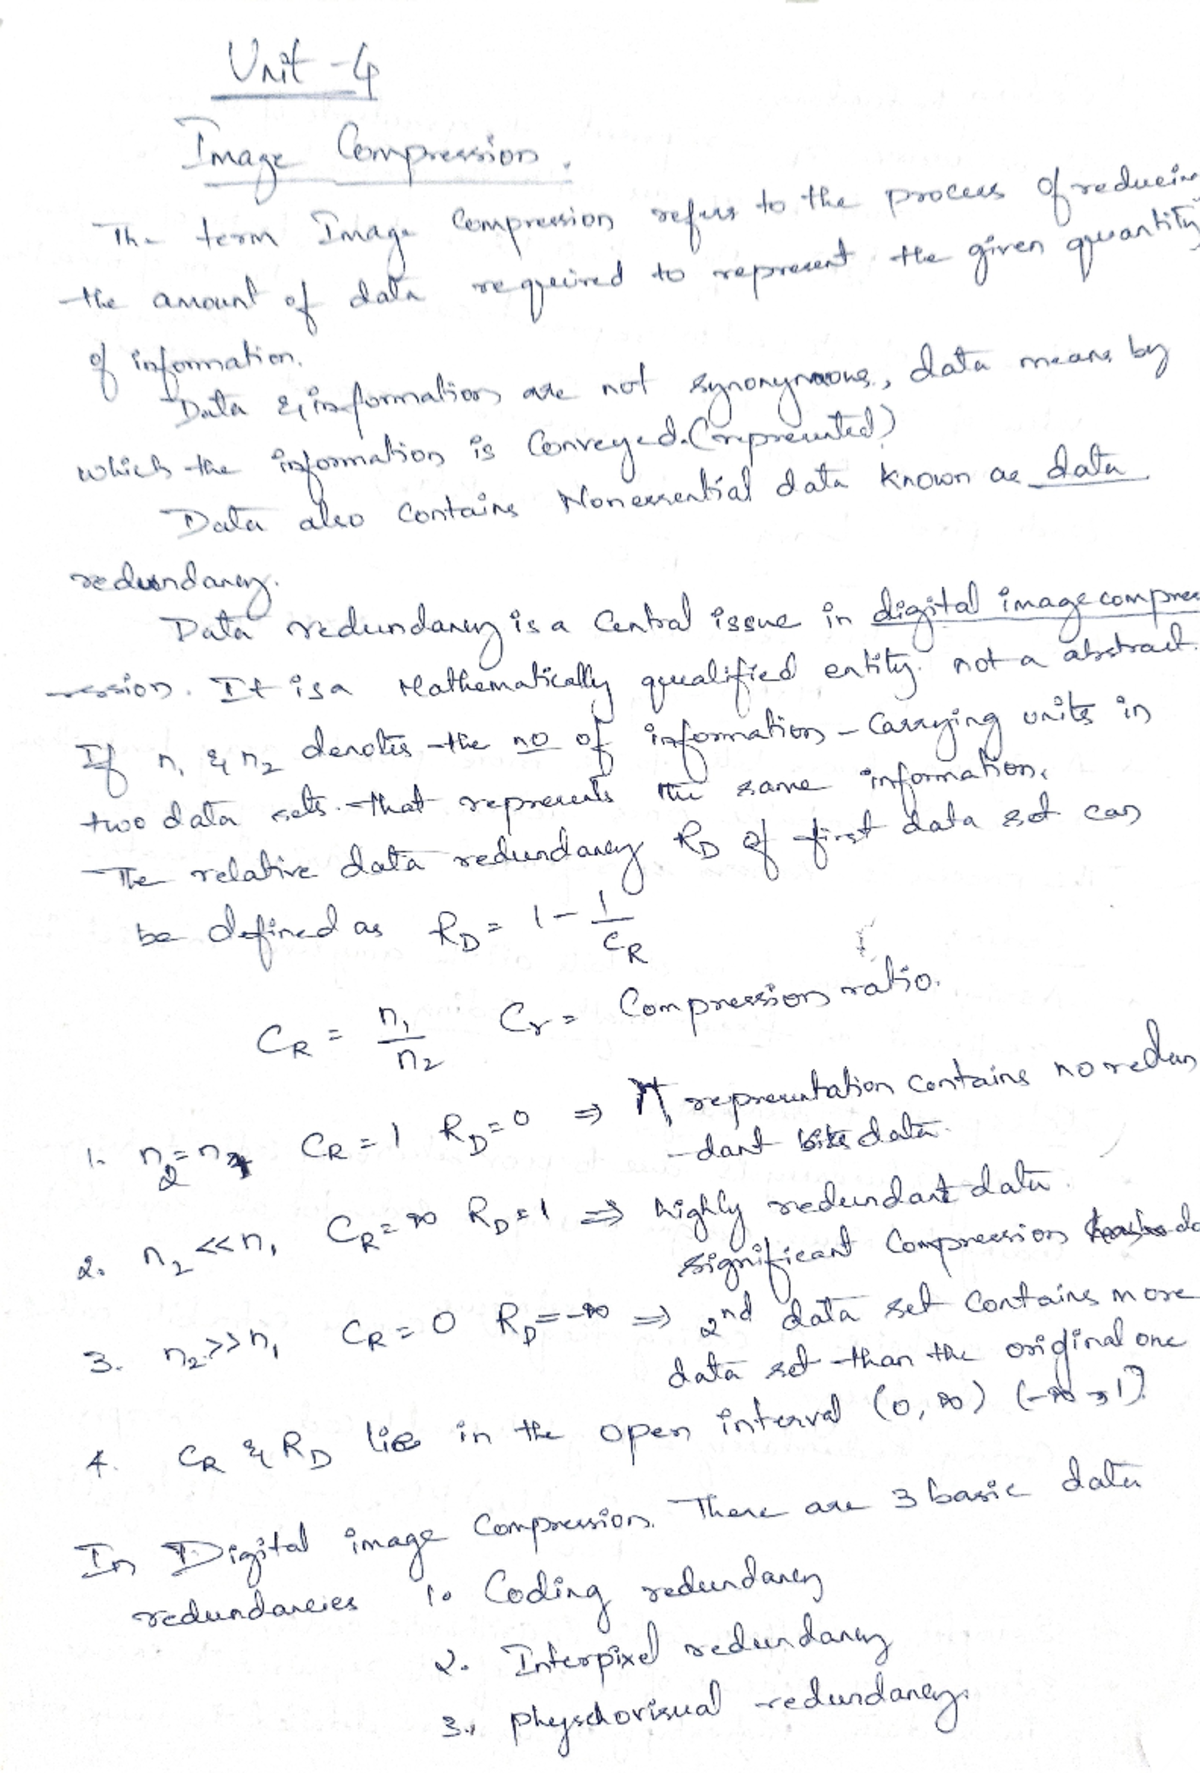 Unit - 4
Image Compression.
The term Image Compression refers to the process of reducin
the amount of data required to represent the given quantity
of information.
Data & information are not synonymous, data means by
which the information is Conveyed. (represented)
Data also contains Nonessential data known as data
redundancy.
Data redundancy is a Central issue in digital image compre
ression. It is a Mathematically qualified entity. not a abstract.
If n1 & n2 denotes the no of information - Carrying units in
two data sets that represents the same information.
The relative data redundancy RD of first data set can
be defined as RD = 1 - 1/CR
CR = n1/n2 Cr = Compression ratio.
1. n2 = n1 CR = 1 RD = 0 ⇒ representation contains no redun
-dant data.
2. n2 << n1 CR = ∞ RD = 1 ⇒ highly redundant data.
significant Compression
3. n2 >> n1 CR = 0 RD = -∞ ⇒ 2nd data set contains more
data set than the original one
4. CR & RD lie in the open interval (0, ∞) (-∞, 1)
In Digital image Compression. There are 3 basic data
redundancies 1. Coding redundancy
2. Interpixel redundancy
3. physchovisual redundancy.